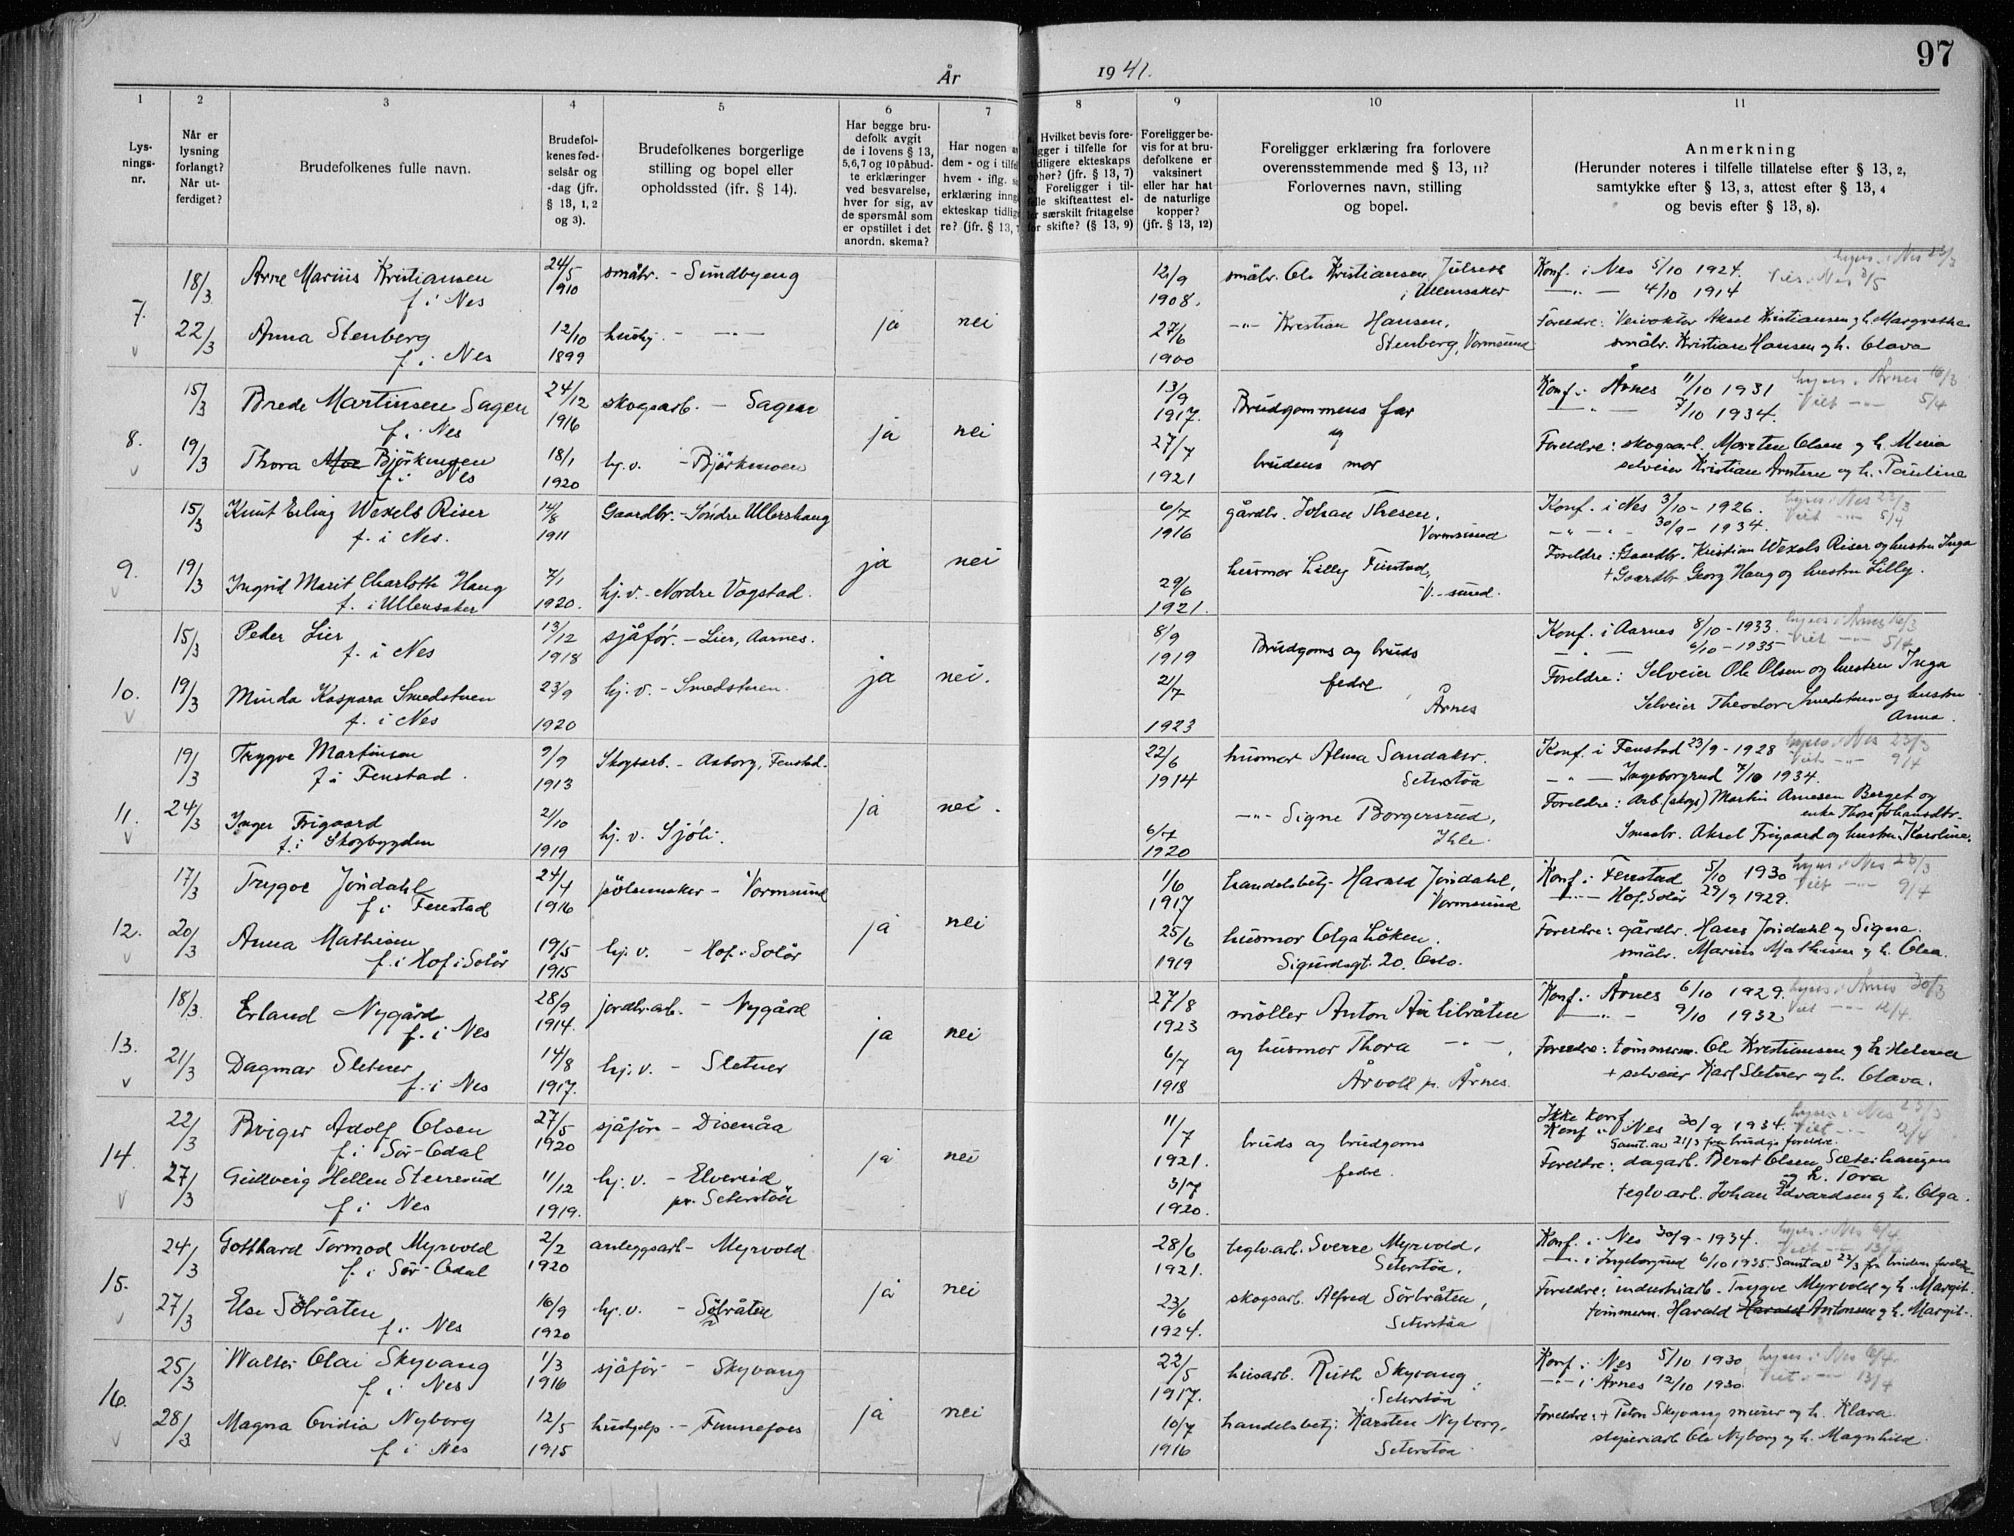 97
År 1941.
1
2
3
4
5
6
7
8
9
10
11
Lysningsnr.
Når er lysning forlangt? Når utferdiget?
Brudefolkenes fulle navn.
Brudefolkenes fødselsår og -dag (jfr. § 13, 1, 2 og 3).
Brudefolkenes borgerlige stilling og bopel eller opholdssted (jfr. § 14).
Har begge brudefolk avgit de i lovens § 13, 5, 6, 7 og 10 påbudte erklæringer ved besvarelse, hver for sig, av de spørsmål som er opstillet i det anordn. skema?
Har nogen av dem - og i tilfelle hvem - iflg. erklæring inngått ekteskap tidligere? (jfr. § 13,
Hvilket bevis foreligger i tilfelle for tidligere ekteskaps ophør? (jfr. § 13, 7) b. Foreligger i tilfelle skifteattest eller særskilt fritagelse for skifte? (§ 13, 9)
Foreligger bevis for at brudefolkene er vaksinert eller har hat de naturlige kopper? (jfr. § 13, 12)
Foreligger erklæring fra forlovere overensstemmende med § 13, 11? Forlovernes navn, stilling og bopel.
Anmerkning (Herunder noteres i tilfelle tillatelse efter § 13, 2, samtykke efter § 13, 3, attest efter § 13, 4 og bevis efter § 13, 8).
7. 18/3 Arne Marius Kristiansen f. i Nes 24/5 1910 småbr. - Sundbyeng
12/9 1908. småbr. Ole Kristiansen, Julsest i Ullensaker
Konf. i Nes 5/10 1924. lyses i Nes 23/3
— " — 4/10 1914 Viet i Nes 3/5
22/3 Anna Stenberg f. i Nes 12/10 1899 hushj. — " — ja nei
27/6 1900 — " — Kristian Hansen, Stenberg, Vormsund
Foreldre: Veivokter Aksel Kristiansen og h. Margrethe
småbr. Kristian Hansen og h. Olava
8. 15/3 Brede Martinsen Sagen f. i Nes 24/12 1916 skogsarb. - Sagen ja nei
13/9 1917. Brudgommens far og
Konf. i Årnes 11/10 1931 lyses i Årnes 16/3
— " — 7/10 1934. Viet — " — 5/4
19/3 Thora Moe Bjørkmoen f. i Nes 18/1 1920 hj. v. - Bjørkmoen
27/7 1921 brudens mor
Foreldre: skogsarb. Morten Olsen og h. Mina
selveier Kristian Arntsen og h. Pauline
9. 15/3 Knut Erling Wexels Riser f. i Nes. 14/8 1911 Gaardbr. - Søndre Ullershaug ja nei
6/7 1916 gårdbr. Johan Thesen, Vormsund
Konf. i Nes 3/10 - 1926. lyses i Nes 23/3
— " — 30/9 - 1934. Viet — " — 5/4
19/3 Ingrid Marit Charlotte Haug f. i Ullensaker 7/1 1920. hj. v. - Nordre Vogstad.
29/6 1921. husmor Lilly Finstad, V.-sund.
Foreldre: Gaardbr. Kristian Wexels Riser og hustru Inga
+ Gaardbr Georg Haug og hustru Lilly.
10. 15/3 Peder Lier f. i Nes 13/12 1918 sjåfør. - Lier, Aarnes. ja nei.
8/9 1919 Brudgoms og bruds
Konf. i Aarnes 8/10 - 1933. lyses i Årnes 16/3
— " — 6/10 - 1935 Viet — " — 5/4
19/3 Minda Kaspara Smedstuen f. i Nes 23/9 1920 hj. v. - Smedstuen.
21/7 1923 fedre, Årnes
Foreldre: Selveier Ole Olsen og hustru Inga
Selveier Theodor Smedstuen og hustru
Anna.
11. 19/3 Trygve Martinsen f. i Fenstad. 9/9 1913 Skogsarb. - Aaborg, Fenstad. ja nei.
22/6 1914 husmor Alma Sandaker. Seterstøa
Konf. i Fenstad 23/9 - 1928 lyses i Nes 23/3
— " — Ingeborgrud 7/10 1934. Viet — " — 9/4
24/3 Inger Frigaard f. i Skogbygden 2/10 1919 hj. v. Sjøli.
6/7 1920 — " — Signe Borgersrud, Ihle.
Foreldre: Arb. (skogs) Martin Arnesen Berget og
enke Thora Johansdtr.
Smaabr. Aksel Frigaard og hustru Karoline.
12. 17/3 Trygve Jøndahl f. i Fenstad 24/4 1916 pølsemaker - Vormsund ja nei
1/6 1917 handelsbetj. Harald Jøndahl, Vormsund
Konf. i Fenstad 5/10 1930 lyses i Nes 23/3
— " — Hof. Solør 29/9 1929. Viet — " — 9/4
20/3 Anna Mathisen f. i Hof i Solør 19/5 1915 hj. v. - Hof i Solør
25/6 1919 husmor Olga Løken. Sigurdsgt. 20. Oslo.
Foreldre: gårdbr. Hans Jøndahl og Signe.
småbr. Marius Mathisen og h. Olea.
13. 18/3 Erland Nygård f. i Nes 28/9 1914. jordbr.arb. - Nygård ja nei
27/8 1923 møller Anton Aulibråten
Konf. i Årnes 6/10 1929. lyses i Årnes 30/3
— " — 9/10 1932 Viet — " — 12/4.
21/3 Dagmar Sletner f. i Nes 14/8 1917. hj. v. - Sletner
6/7 1918 og husmor Thora — " —, Årvoll pr. Årnes.
Foreldre: tømmerm. Ole Kristiansen og h. Helene
+ selveier Karl Sletner og h. Olava.
14. 22/3 Briger Adolf Olsen f. i Sør-Odal 27/5 1920 sjåfør - Disenåa ja nei
11/7 1921. bruds og brudgoms
Ikke konf. lyses i Nes 23/3
Konf. i Nes 30/9 1934. Viet — " — 12/4
Samt. av 21/3 fra brudg.s foreldre.
27/3 Gullveig Hellen Stenerud f. i Nes 11/12 1919. hj. v. - Elverud pr. Seterstøa
3/7 1920. fedre.
Foreldre: dagarb. Bernt Olsen Sæterhaugen
og h. Tora
teglv.arb. Johan Edvardsen og h. Olga.
15. 24/3 Gotthard Tormod Myrvold f. i Sør-Odal 2/2 1920 anleggsarb - Myrvold ja nei
28/6 1921. teglv.arb. Sverre Myrvold, Seterstøa.
Konf. i Nes 30/9 - 1934. lyses i Nes 6/4 Viet — " — 13/4
— " — i Ingeborgrud 6/10 1935. Samt av 22/3 fra brudens foreldre
27/3 Else Sørbråten f. i Nes 16/9 1920 hj. v. - Sørbråten
23/6 1924. skogsarb. Alfred Sørbråten, Seterstøa
Foreldre: industriarb. Trygve Myrvold og h. Margit.
tømmerm. Harald Harald Antonsen og h. Margit.
16. 25/3 Walter Olai Skyvang f. i Nes 1/3 1916 sjåfør - Skyvang ja nei
22/5 1917. husarb. Ruth Skyvang, Seterstøa
Konf. i Nes 5/10 1930 lyses i Nes 6/4.
— " — i Årnes 12/10 1930. Viet — " — 13/4
28/3 Magna Ovidia Nyborg f. i Nes 12/5 1915 hushjelp - Funnefoss
10/7 1916 handelsbetj. Karsten Nyborg, Seterstøa.
Foreldre: + Teton Skyvang murer og h. Klara.
sliperiarb Ole Nyborg og h. Magnhild.